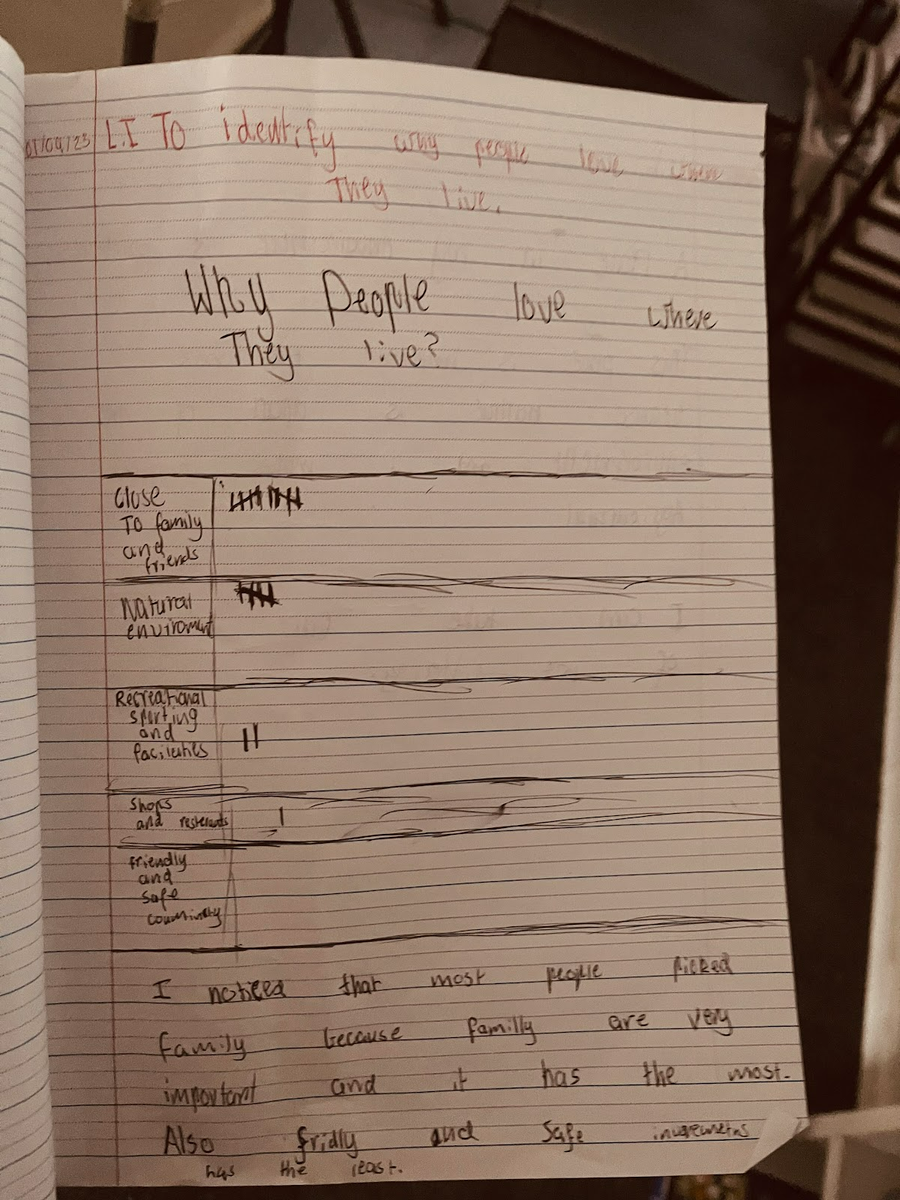 01/09/23 L.I To identify why people love where
They live.
Why People love where
They live?
Close
To family
and
friends
Natural
enviroment
Recreational
sporting
and
facileties
Shops
and resterants
friendly
and
safe
community
I noticed that most people picked
family because familly are very
important and it has the most.
Also fridly and safe
has the least.